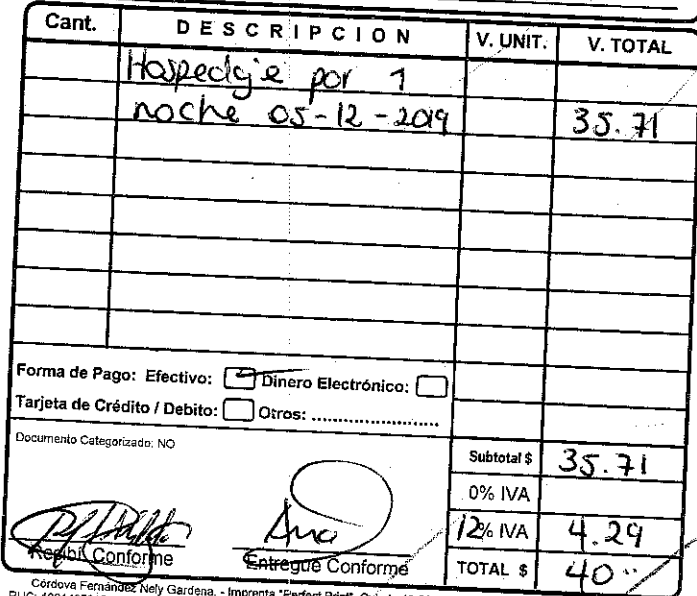 Cant. DESCRIPCION V. UNIT. V. TOTAL
Hospedaje por 1
noche 05-12-2019 35.71
Forma de Pago: Efectivo: Dinero Electrónico:
Tarjeta de Crédito / Debito: Otros: ........................
Documento Categorizado: NO
Subtotal $ 35.71
0% IVA
12% IVA 4.29
Ana
Recibí Conforme Entregué Conforme TOTAL $ 40
Córdova Fernández Nely Gardena. - Imprenta "Perfect Print"